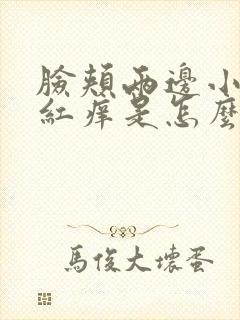 臉頰兩邊小
紅癢是怎麼
馬俊大壞蛋